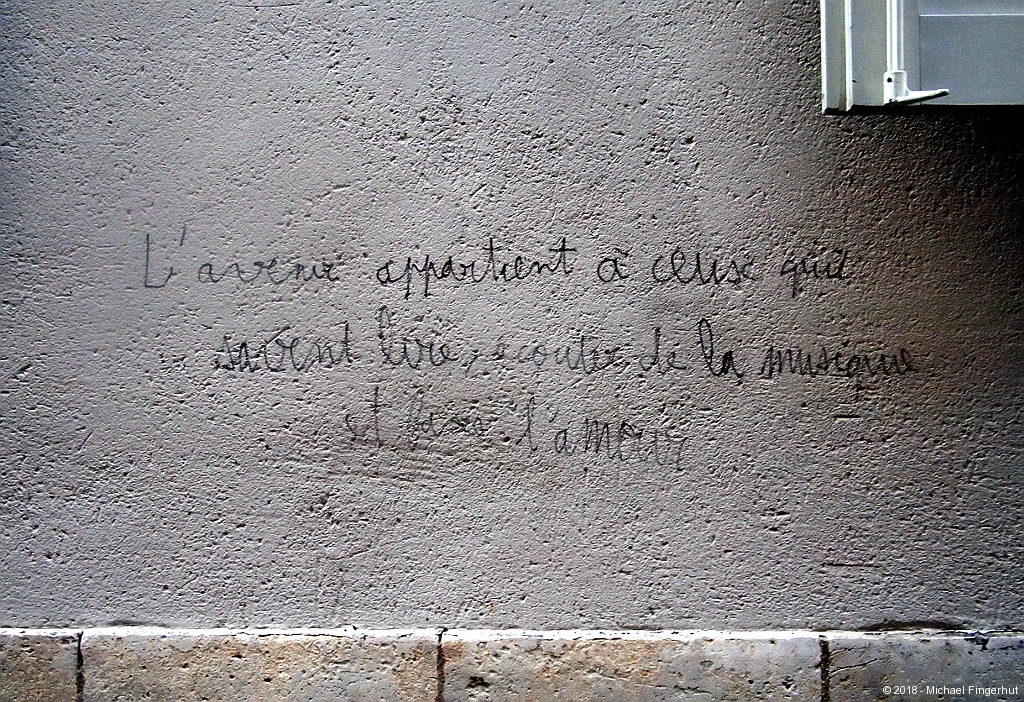 L'avenir appartient à ceux qui
savent lire, écouter de la musique
et faire l'amour
© 2018 - Michael Fingerhut